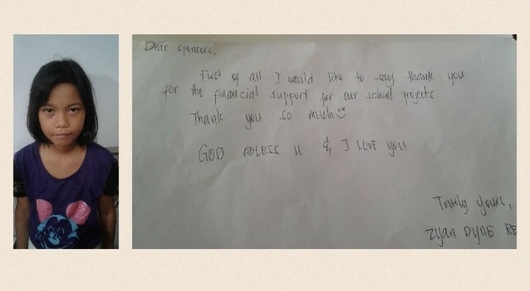 Dear Sponsors,
First of all I would like to say thank you
for the financial support for our school projects
Thank you so much
GOD BLESS & I LOVE YOU
Truely yours,
Zyan DYNE RE